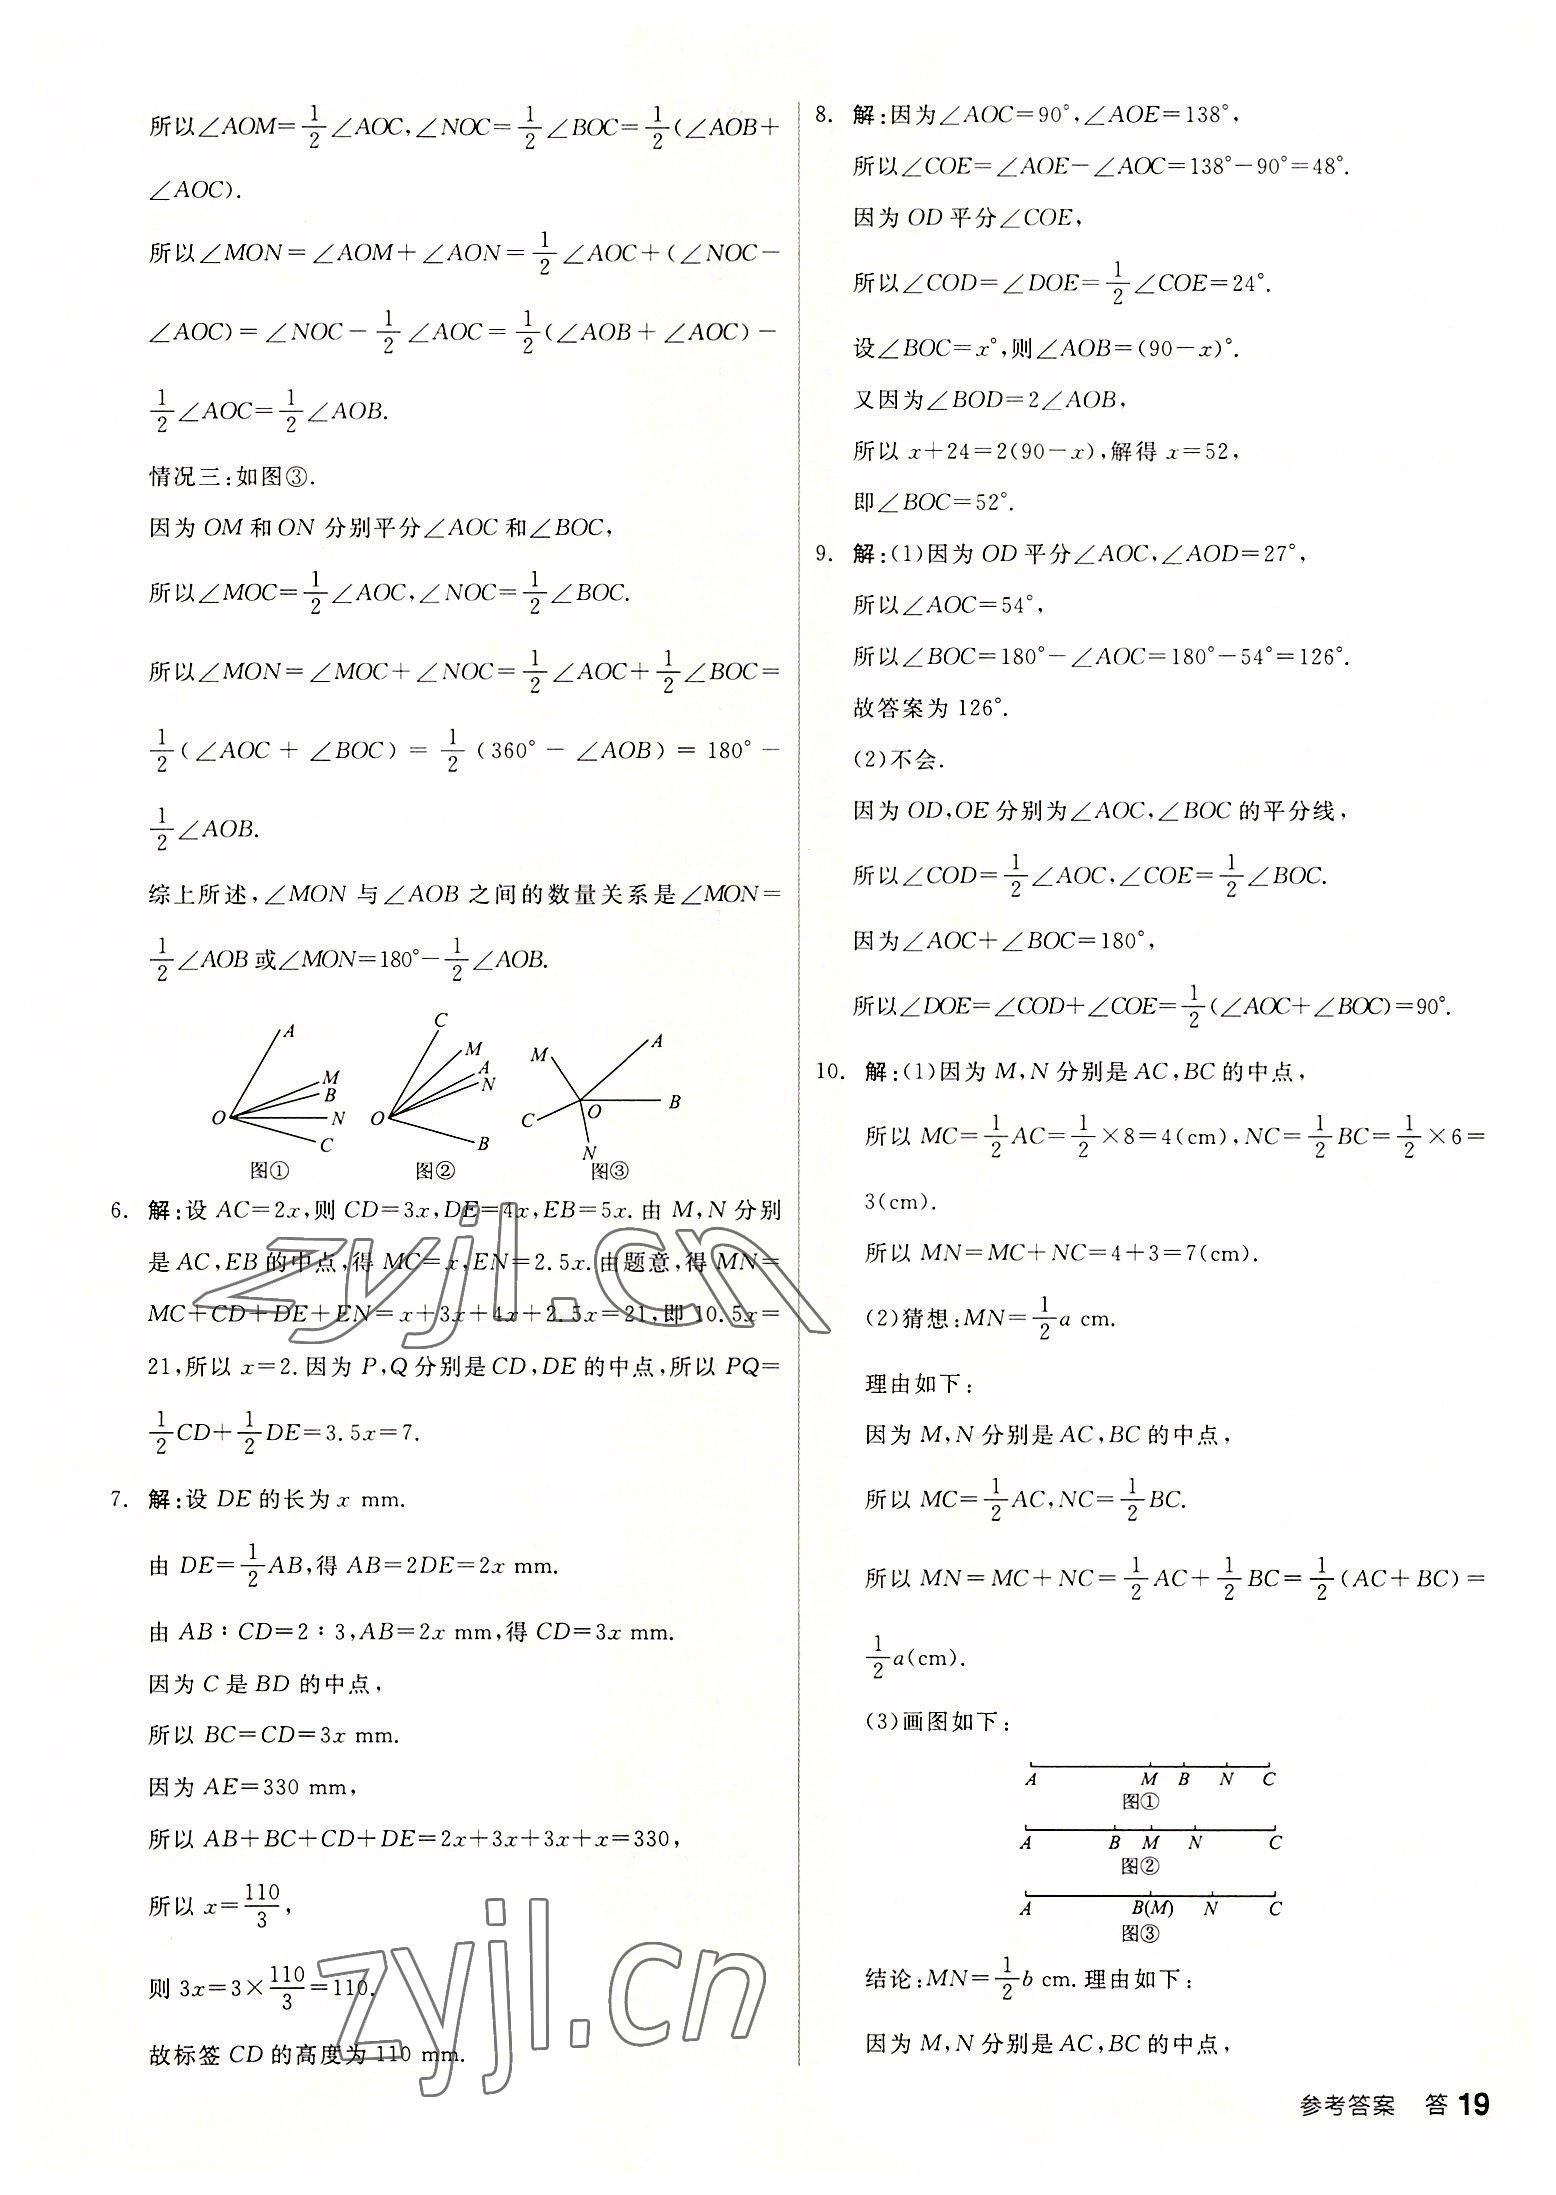 所以∠AOM=1/2∠AOC,∠NOC=1/2∠BOC=1/2(∠AOB+
∠AOC).
所以∠MON=∠AOM+∠AON=1/2∠AOC+(∠NOC-
∠AOC)=∠NOC-1/2∠AOC=1/2(∠AOB+∠AOC)-
1/2∠AOC=1/2∠AOB.
情况三:如图③.
因为OM和ON分别平分∠AOC和∠BOC,
所以∠MOC=1/2∠AOC,∠NOC=1/2∠BOC.
所以∠MON=∠MOC+∠NOC=1/2∠AOC+1/2∠BOC=
1/2(∠AOC+∠BOC)=1/2(360°-∠AOB)=180°-
1/2∠AOB.
综上所述,∠MON与∠AOB之间的数量关系是∠MON=
1/2∠AOB或∠MON=180°-1/2∠AOB.
A M B N C O
图①
C M A N B O
图②
M A B O C N
图③
6. 解:设AC=2x,则CD=3x,DE=4x,EB=5x.由M,N分别
是AC,EB的中点,得MC=x,EN=2.5x.由题意,得MN=
MC+CD+DE+EN=x+3x+4x+2.5x=21,即10.5x=
21,所以x=2.因为P,Q分别是CD,DE的中点,所以PQ=
1/2CD+1/2DE=3.5x=7.
7. 解:设DE的长为x mm.
由DE=1/2AB,得AB=2DE=2x mm.
由AB∶CD=2∶3,AB=2x mm,得CD=3x mm.
因为C是BD的中点,
所以BC=CD=3x mm.
因为AE=330 mm,
所以AB+BC+CD+DE=2x+3x+3x+x=330,
所以x=110/3,
则3x=3×110/3=110.
故标签CD的高度为110 mm.
8. 解:因为∠AOC=90°,∠AOE=138°,
所以∠COE=∠AOE-∠AOC=138°-90°=48°.
因为OD平分∠COE,
所以∠COD=∠DOE=1/2∠COE=24°.
设∠BOC=x°,则∠AOB=(90-x)°.
又因为∠BOD=2∠AOB,
所以x+24=2(90-x),解得x=52,
即∠BOC=52°.
9. 解:(1)因为OD平分∠AOC,∠AOD=27°,
所以∠AOC=54°,
所以∠BOC=180°-∠AOC=180°-54°=126°.
故答案为126°.
(2)不会.
因为OD,OE分别为∠AOC,∠BOC的平分线,
所以∠COD=1/2∠AOC,∠COE=1/2∠BOC.
因为∠AOC+∠BOC=180°,
所以∠DOE=∠COD+∠COE=1/2(∠AOC+∠BOC)=90°.
10. 解:(1)因为M,N分别是AC,BC的中点,
所以MC=1/2AC=1/2×8=4(cm),NC=1/2BC=1/2×6=
3(cm).
所以MN=MC+NC=4+3=7(cm).
(2)猜想:MN=1/2a cm.
理由如下:
因为M,N分别是AC,BC的中点,
所以MC=1/2AC,NC=1/2BC.
所以MN=MC+NC=1/2AC+1/2BC=1/2(AC+BC)=
1/2a(cm).
(3)画图如下:
A M B N C
图①
A B M N C
图②
A B(M) N C
图③
结论:MN=1/2b cm.理由如下:
因为M,N分别是AC,BC的中点,
参考答案 答19
zyjl.cn
zyjl.cn